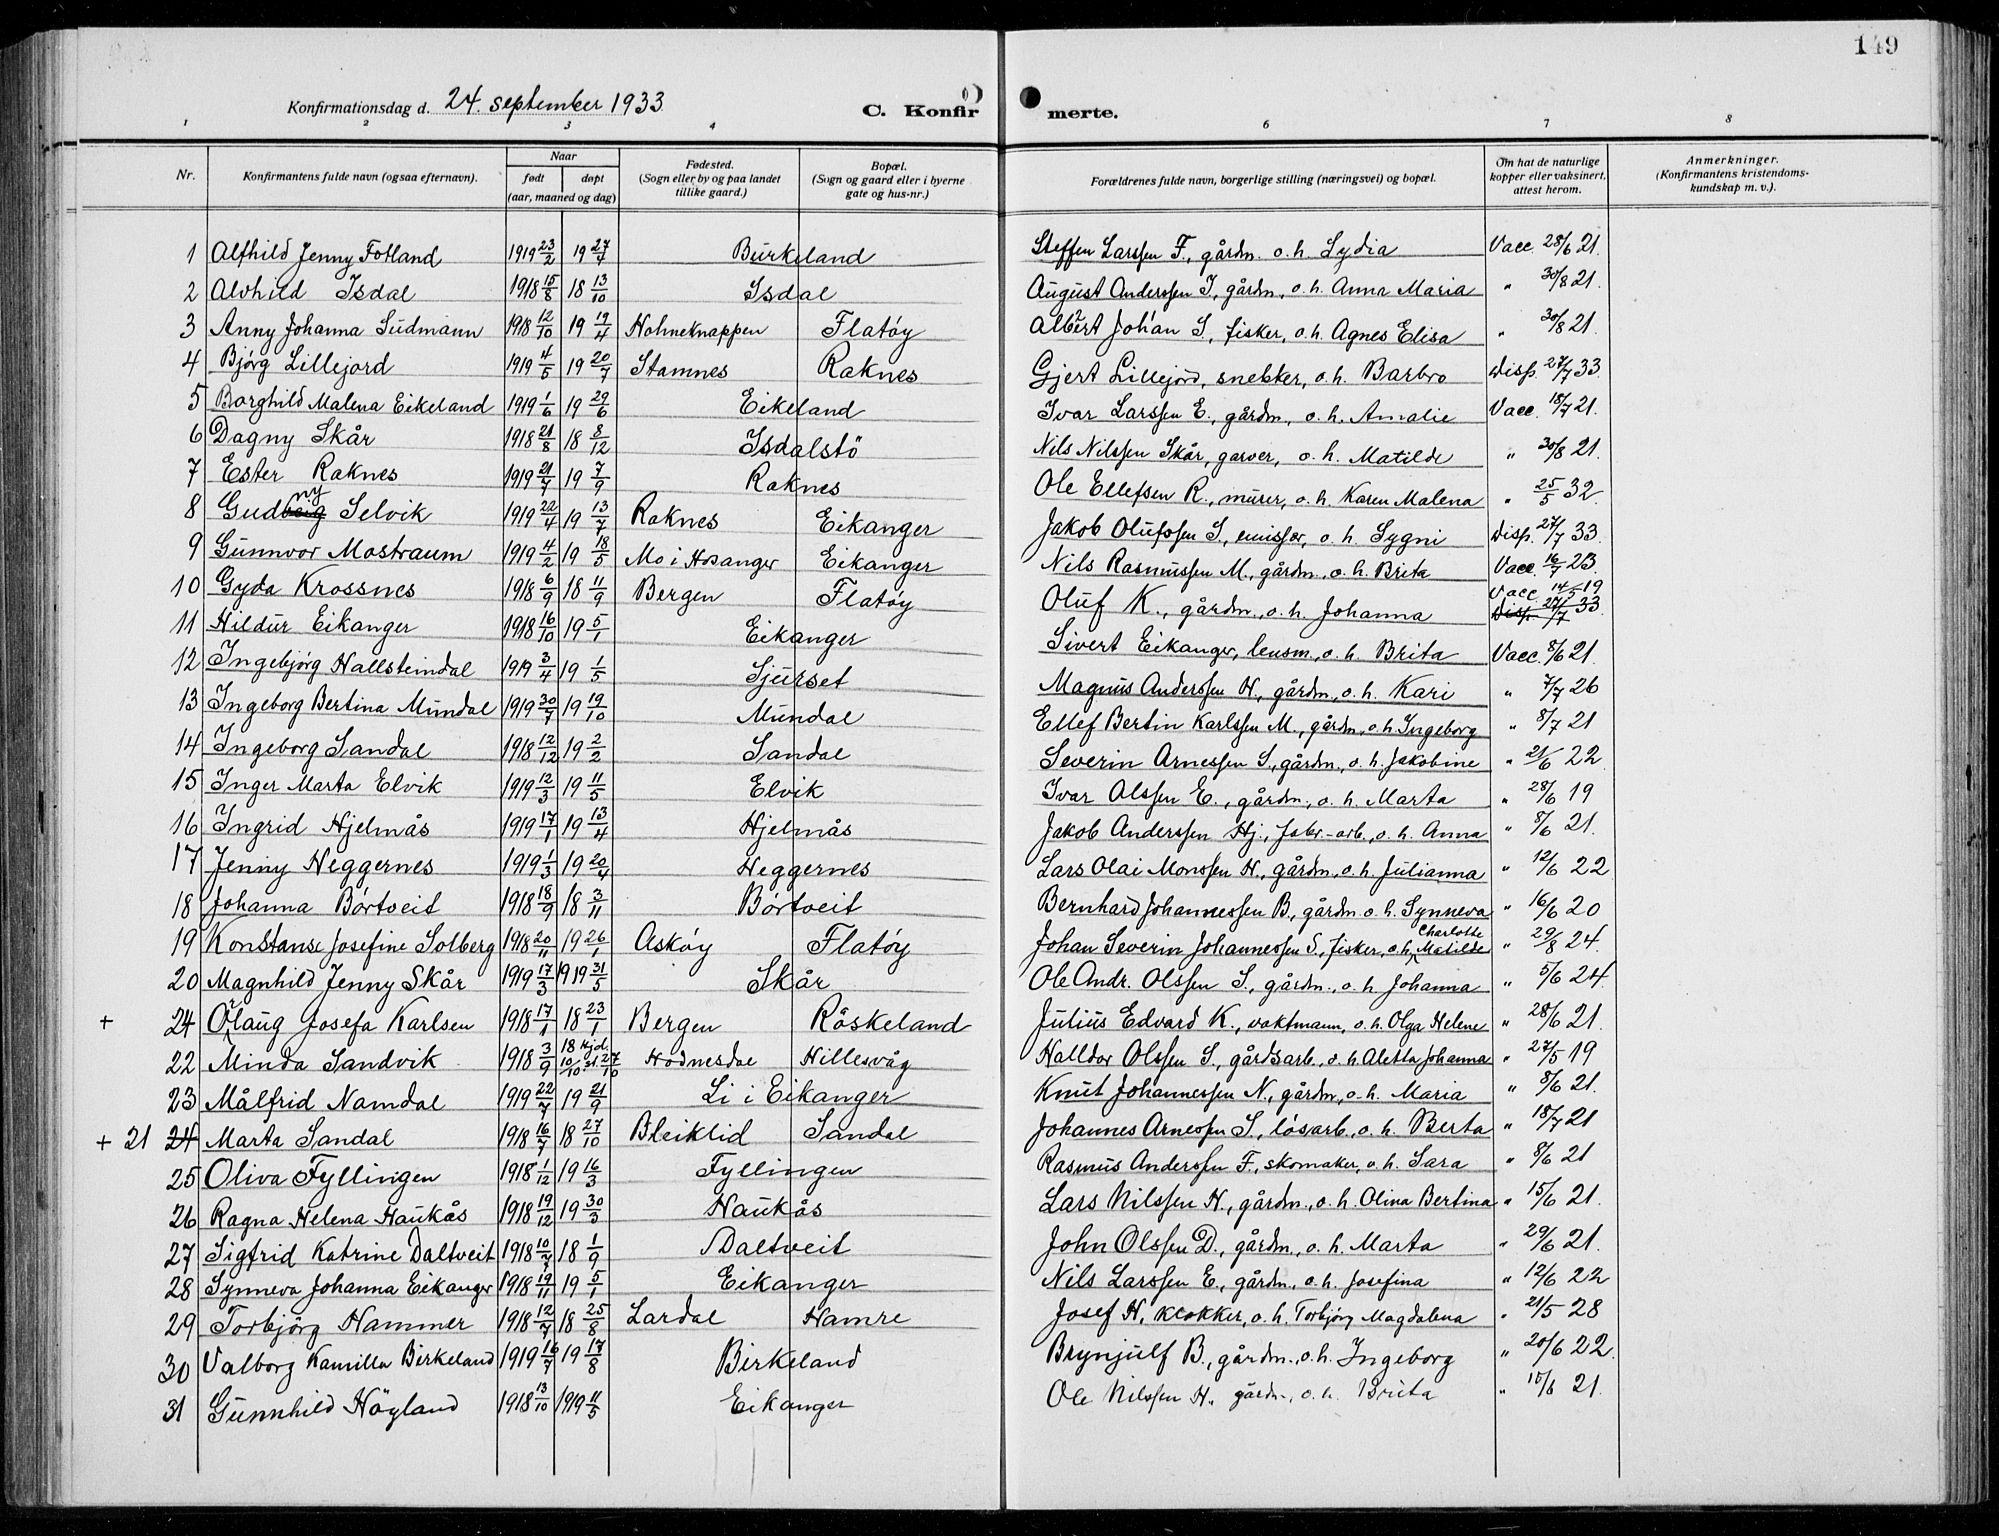 149
Konfirmationsdag d. 24. september 1933
C. Konfirmerte.
1 2 3 4 6 7 8
Nr. | Konfirmantens fulde navn (ogsaa efternavn). | Naar født døpt (aar, maaned og dag) | Fødested. (Sogn eller by og paa landet tillike gaard.) | Bopæl. (Sogn og gaard eller i byerne gate og hus-nr.) | Forældrenes fulde navn, borgerlige stilling (næringsvei) og bopæl. | Om hat de naturlige kopper eller vaksinert, attest herom. | Anmerkninger. (Konfirmantens kristendomskundskap m. v.).
1 Alfhild Jenny Fotland 1919 23/2 19 27/4 Birkeland Steffen Larssen F., gårdm. o. h. Lydia Vacc. 28/6 21.
2 Alvhild Isdal 1918 15/8 18 13/10 Isdal August Anderssen I., gårdm., o. h. Anna Maria " 30/8 21.
3 Anny Johanna Sudmann 1918 12/10 19 19/4 Hohneknappen Flatøy Albert Johan S., fisker, o. h. Agnes Elisa " 30/8 21.
4 Bjørg Lillejord 1919 4/5 19 20/7 Stamnes Raknes Gjert Lillejord, snekker, o. h. Barbro Disp. 27/7 33.
5 Borghild Malena Eikeland 1919 1/6 19 29/6 Eikeland Ivar Larssen E., gårdm., o. h. Amalie Vacc. 18/7 21.
6 Dagny Skår 1918 21/8 18 8/12 Isdalstö Nils Nilssen Skår, garver, o. h. Matilde " 30/8 21.
7 Ester Raknes 1919 21/7 19 7/9 Raknes Ole Ellefsen R., murer, o. h. Karen Malena " 25/5 32.
8 Gudny Selvik 1919 22/4 19 13/7 Raknes Eikanger Jakob Olufssen S., emissær, o. h. Sygni Disp. 27/7 33.
9 Gunnvor Mostraum 1919 4/2 19 18/5 Mo i Hosanger Eikanger Nils Rasmussen M., gårdm., o. h. Brita Vacc. 16/7 23.
10 Gyda Krossnes 1918 6/9 18 11/9 Bergen Flatøy Oluf K., gårdm., o. h. Johanna Vacc 14/5 19 Disp. 27/7 33.
11 Hildur Eikanger 1918 16/10 19 5/1 Eikanger Sivert Eikanger, lensm., o. h. Brita Vacc. 8/6 21.
12 Ingebjørg Hallsteindal 1919 3/4 19 1/5 Sjurset Magnus Anderssen H., gårdm., o. h. Kari " 7/7 26
13 Ingeborg Bertina Mundal 1919 30/7 19 19/10 Mundal Ellef Bertin Karlssen M., gårdm., o. h. Ingeborg " 8/7 21
14 Ingeborg Sandal 1918 12/12 19 2/2 Sandal Severin Arnessen S., gårdm., o. h. Jakobine " 21/6 22
15 Inger Marta Elvik 1919 12/3 19 11/5 Elvik Ivar Olssen E., gårdm., o. h. Marta " 28/6 19
16 Ingrid Hjelmås 1919 17/1 19 13/4 Hjelmås Jakob Anderssen Hj., fabr.-arb., o. h. Anna " 8/6 21.
17 Jenny Heggernes 1919 1/3 19 20/4 Heggernes Lars Olai Monssen H., gårdm., o. h. Julianna " 12/6 22
18 Johanna Börtveit 1918 18/9 18 3/11 Börtveit Bernhard Johannessen B., gårdm. o. h. Synneva " 16/6 20
19 Konstanse Josefine Solberg 1918 20/11 19 26/1 Askøy Flatøy Johan Severin Johannessen S., fisker, o. h. Charlotte Matilde " 29/8 24.
20 Magnhild Jenny Skår 1919 17/3 1919 31/5 Skår Ole Andr. Olssen S., gårdm., o. h. Johanna " 5/6 24.
+ 24 Olaug Josefa Karlsen 1918 17/1 18 23/1 Bergen Röskeland Julius Edvard K., vaktmann, o. h. Olga Helene " 28/6 21.
22 Minda Sandvik 1918 3/9 18 hjd. 10/10 st. 27/10 Hodnesdal Hillesvåg Halldor Olssen S., gårdsarb., o. h. Aletta Johanna " 27/5 19
23 Målfrid Namdal 1919 22/7 19 21/9 Li i Eikanger Knut Johannessen N., gårdm., o. h. Maria " 8/6 21.
+ 21 24 Marta Sandal 1918 16/7 18 27/10 Bleiklid Sandal Johannes Arnessen S., lösarb., o. h. Berta " 18/7 21
25 Oliva Fyllingen 1918 1/12 19 16/3 Fyllingen Rasmus Anderssen F., skomaker, o. h. Sara " 8/6 21
26 Ragna Helena Haukås 1918 19/12 19 30/3 Haukås Lars Nilssen H., gårdm., o. h. Olina Bertina " 15/6 21.
27 Sigfrid Katrine Daltveit 1918 10/7 18 1/9 Daltveit John Olssen D., gårdm., o. h. Marta " 29/6 21.
28 Synneva Johanna Eikanger 1918 19/11 19 5/1 Eikanger Nils Larssen E., gårdm., o. h. Josefina " 12/6 22
29 Torbjörg Hammer 1918 12/7 18 25/8 Lardal Hamre Josef H., klokker, o. h. Torbjörg Magdalena " 21/5 28
30 Valborg Kamilla Birkeland 1919 16/7 19 17/8 Birkeland Brynjulf B., gårdm., o. h. Ingeborg " 20/6 22.
31 Gunnhild Höyland 1918 13/10 1919 11/5 Eikanger Ole Nilssen H., gårdm., o. h. Brita " 15/6 21.